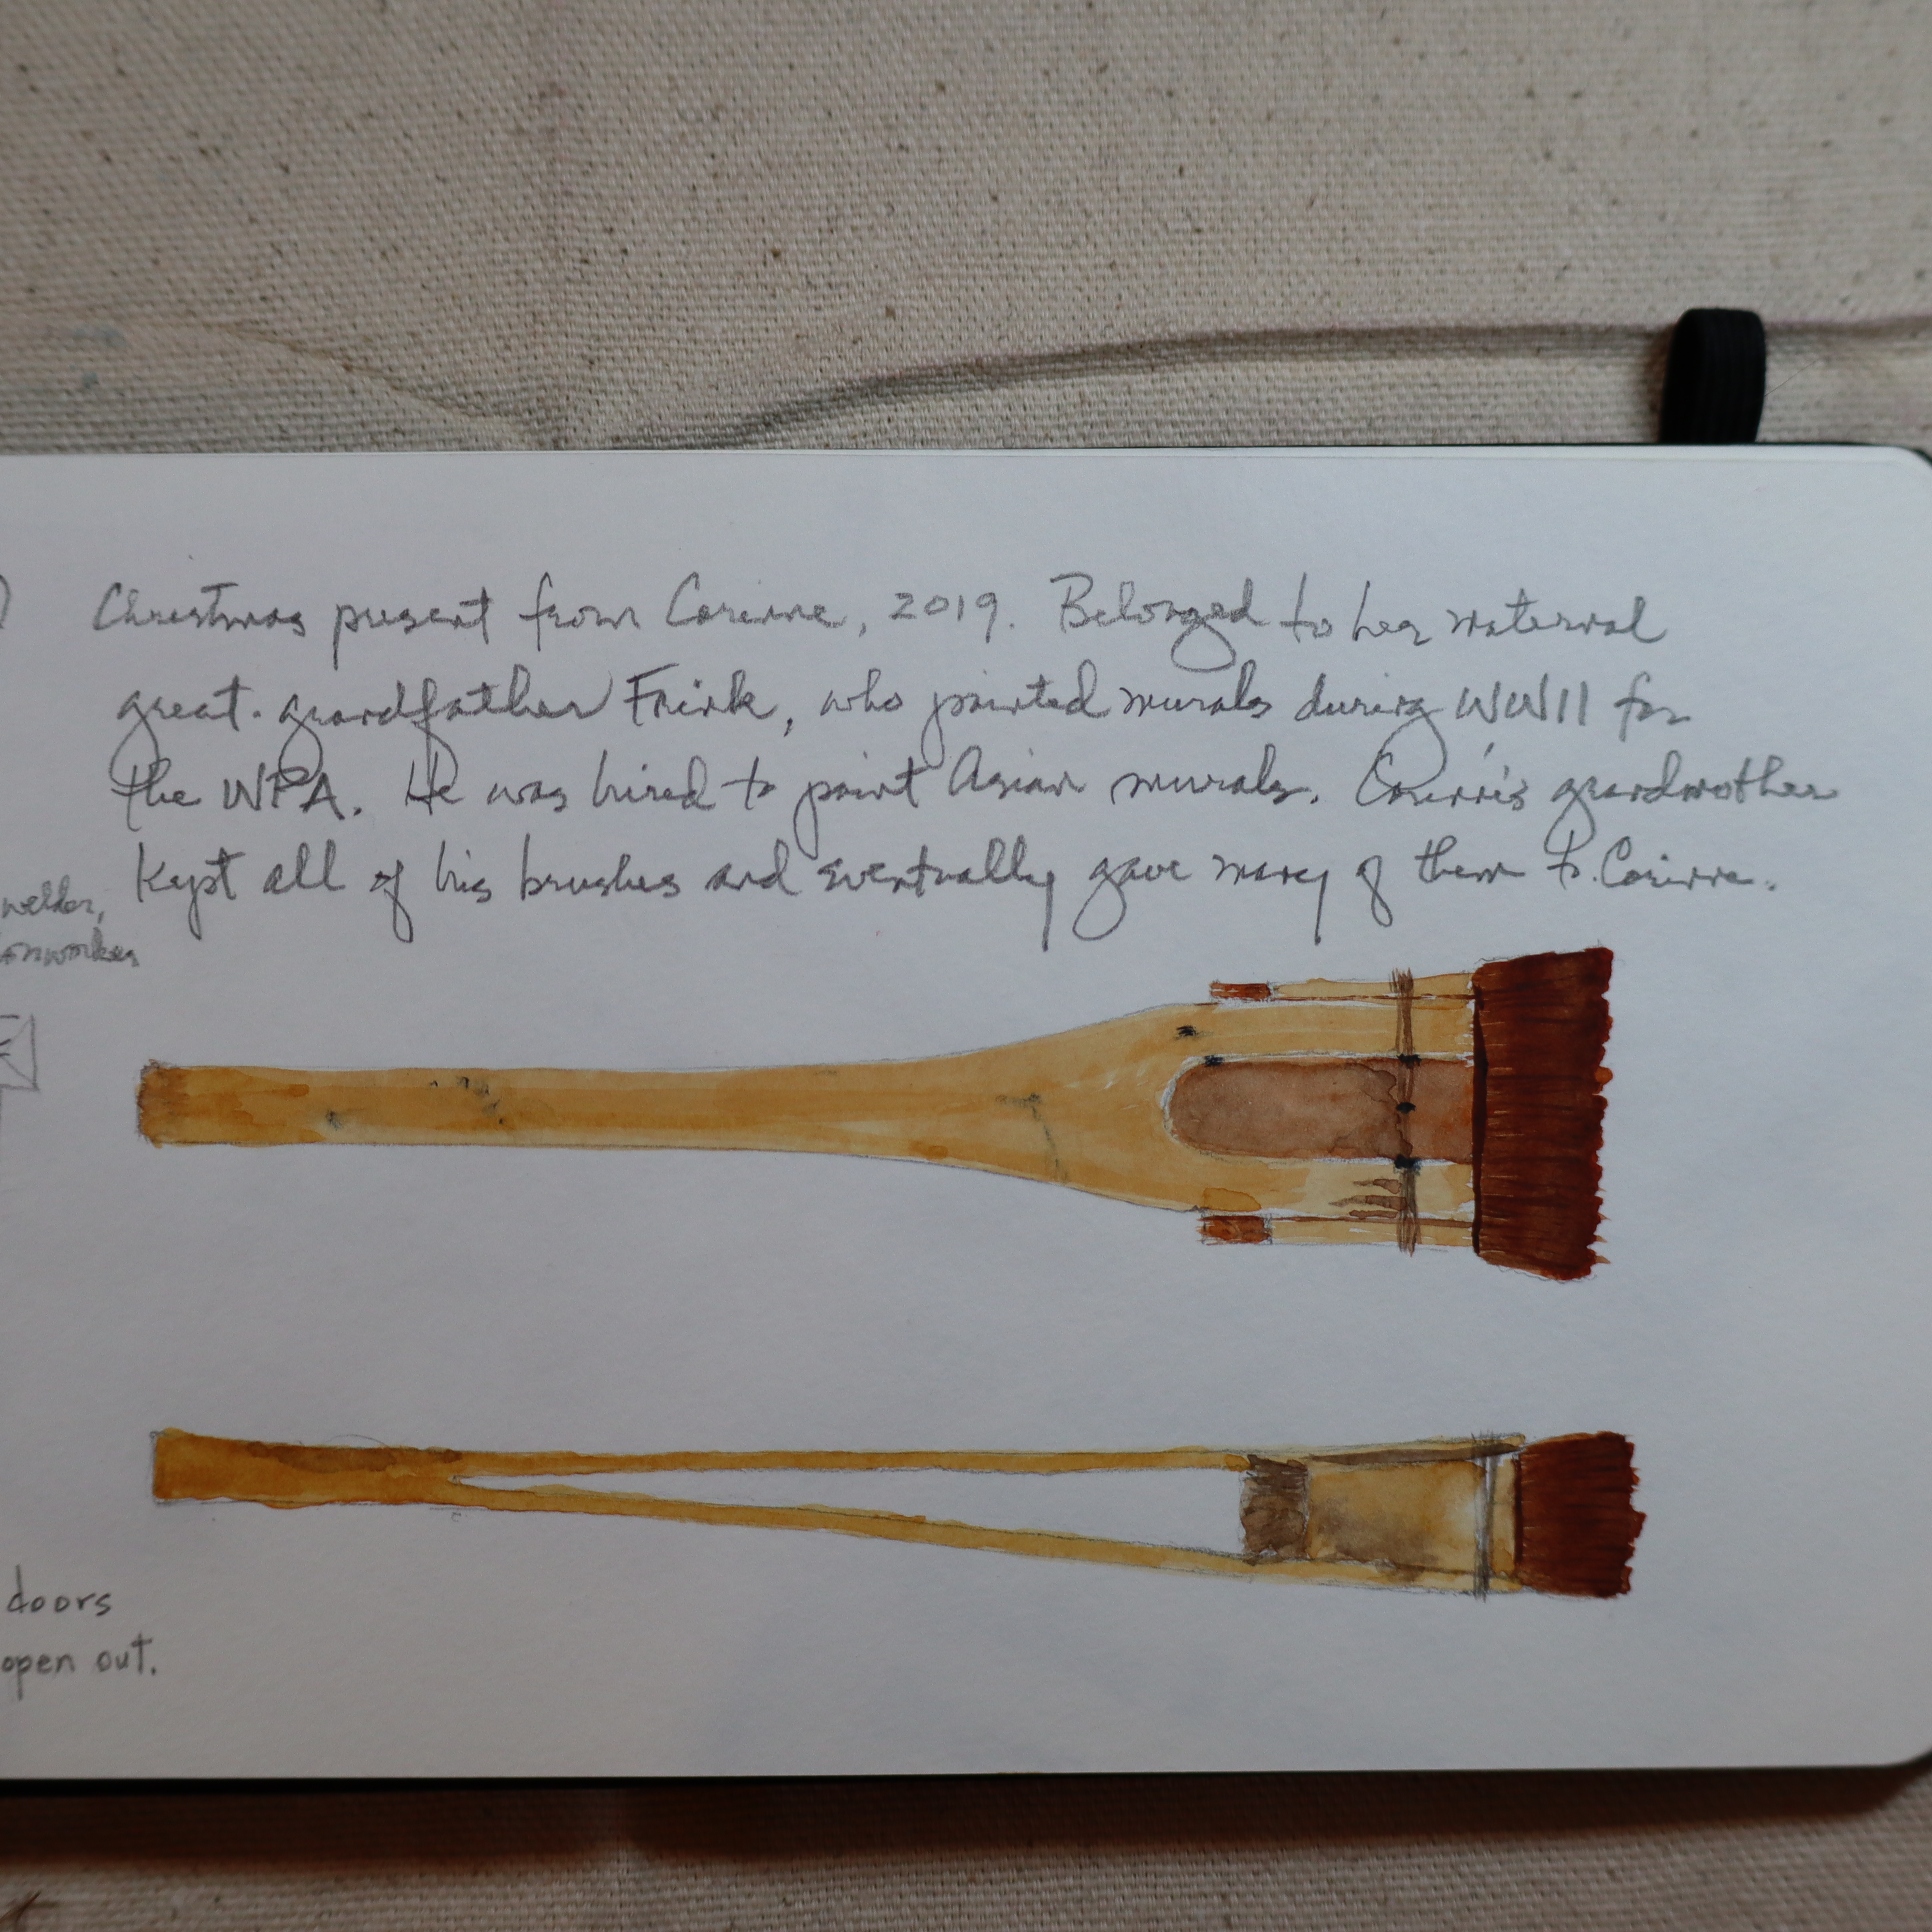 Christmas present from Corinne, 2019. Belonged to her maternal
great-grandfather Frink, who painted murals during WWII for
the WPA. He was hired to paint Asian murals. Corinne's grandmother
kept all of his brushes and eventually gave many of them to Corinne.
welder,
doors
open out.